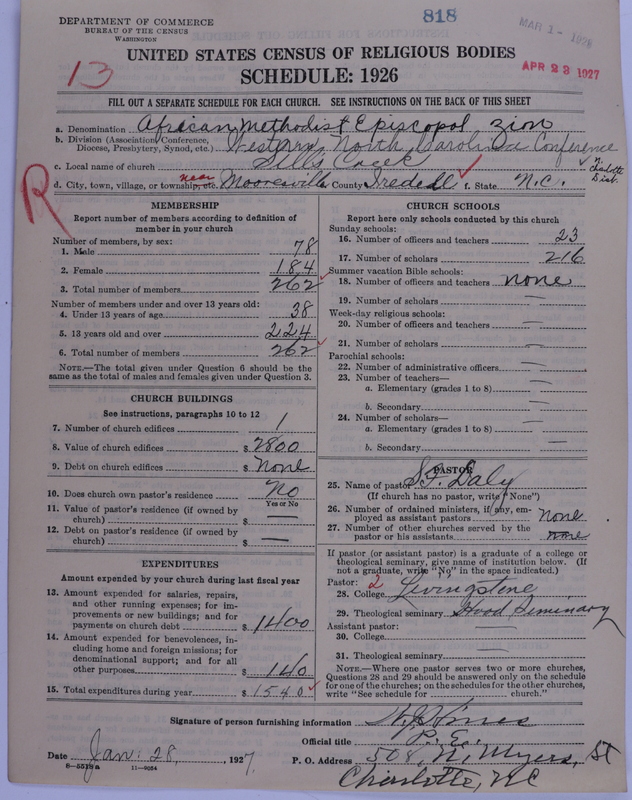 DEPARTMENT OF COMMERCE
BUREAU OF THE CENSUS
WASHINGTON
818
MAR 1 - 1928
APR 23 1927
13
UNITED STATES CENSUS OF RELIGIOUS BODIES
SCHEDULE: 1926
FILL OUT A SEPARATE SCHEDULE FOR EACH CHURCH. SEE INSTRUCTIONS ON THE BACK OF THIS SHEET
a. Denomination African Methodist Episcopal Zion
b. Division (Association, Conference, Diocese, Presbytery, Synod, etc.) Western North Carolina Conference
c. Local name of church
Charlotte Dist.
R
d. City, town, village, or township, etc. near Mooresville County Iredell f. State N.C.
MEMBERSHIP
Report number of members according to definition of
member in your church
Number of members, by sex:
1. Male 78
2. Female 184
3. Total number of members 262
Number of members under and over 13 years old:
4. Under 13 years of age 38
5. 13 years old and over 224
6. Total number of members 262
NOTE.—The total given under Question 6 should be the
same as the total of males and females given under Question 3.
CHURCH BUILDINGS
See instructions, paragraphs 10 to 12
7. Number of church edifices 1
8. Value of church edifices $ 2800
9. Debt on church edifices $ None
10. Does church own pastor's residence No
Yes or No
11. Value of pastor's residence (if owned by
church) $ —
12. Debt on pastor's residence (if owned by
church) $ —
EXPENDITURES
Amount expended by your church during last fiscal year
13. Amount expended for salaries, repairs,
and other running expenses; for im-
provements or new buildings; and for
payments on church debt $ 1400
14. Amount expended for benevolences, in-
cluding home and foreign missions; for
denominational support; and for all
other purposes $ 140
15. Total expenditures during year $ 1540
CHURCH SCHOOLS
Report here only schools conducted by this church
Sunday schools:
16. Number of officers and teachers 23
17. Number of scholars 216
Summer vacation Bible schools:
18. Number of officers and teachers none
19. Number of scholars —
Week-day religious schools:
20. Number of officers and teachers —
21. Number of scholars —
Parochial schools:
22. Number of administrative officers —
23. Number of teachers—
a. Elementary (grades 1 to 8) —
b. Secondary —
24. Number of scholars—
a. Elementary (grades 1 to 8) —
b. Secondary —
PASTOR
25. Name of pastor Daly
(If church has no pastor, write "None")
26. Number of ordained ministers, if any, em-
ployed as assistant pastors none
27. Number of other churches served by the
pastor or his assistants none
If pastor (or assistant pastor) is a graduate of a college or
theological seminary, give name of institution below. (If
not a graduate, write "No" in the space indicated.)
Pastor: 2
28. College Livingstone
29. Theological seminary Hood Seminary
Assistant pastor:
30. College
31. Theological seminary —
NOTE.—Where one pastor serves two or more churches,
Questions 28 and 29 should be answered only on the schedule
for one of the churches; on the schedules for the other churches,
write "See schedule for ______ church."
Signature of person furnishing information
Official title P. E.
Date Jan. 28, 1927. P. O. Address 508, N. Myers, St
8-5518a 11-9054
Charlotte, NC